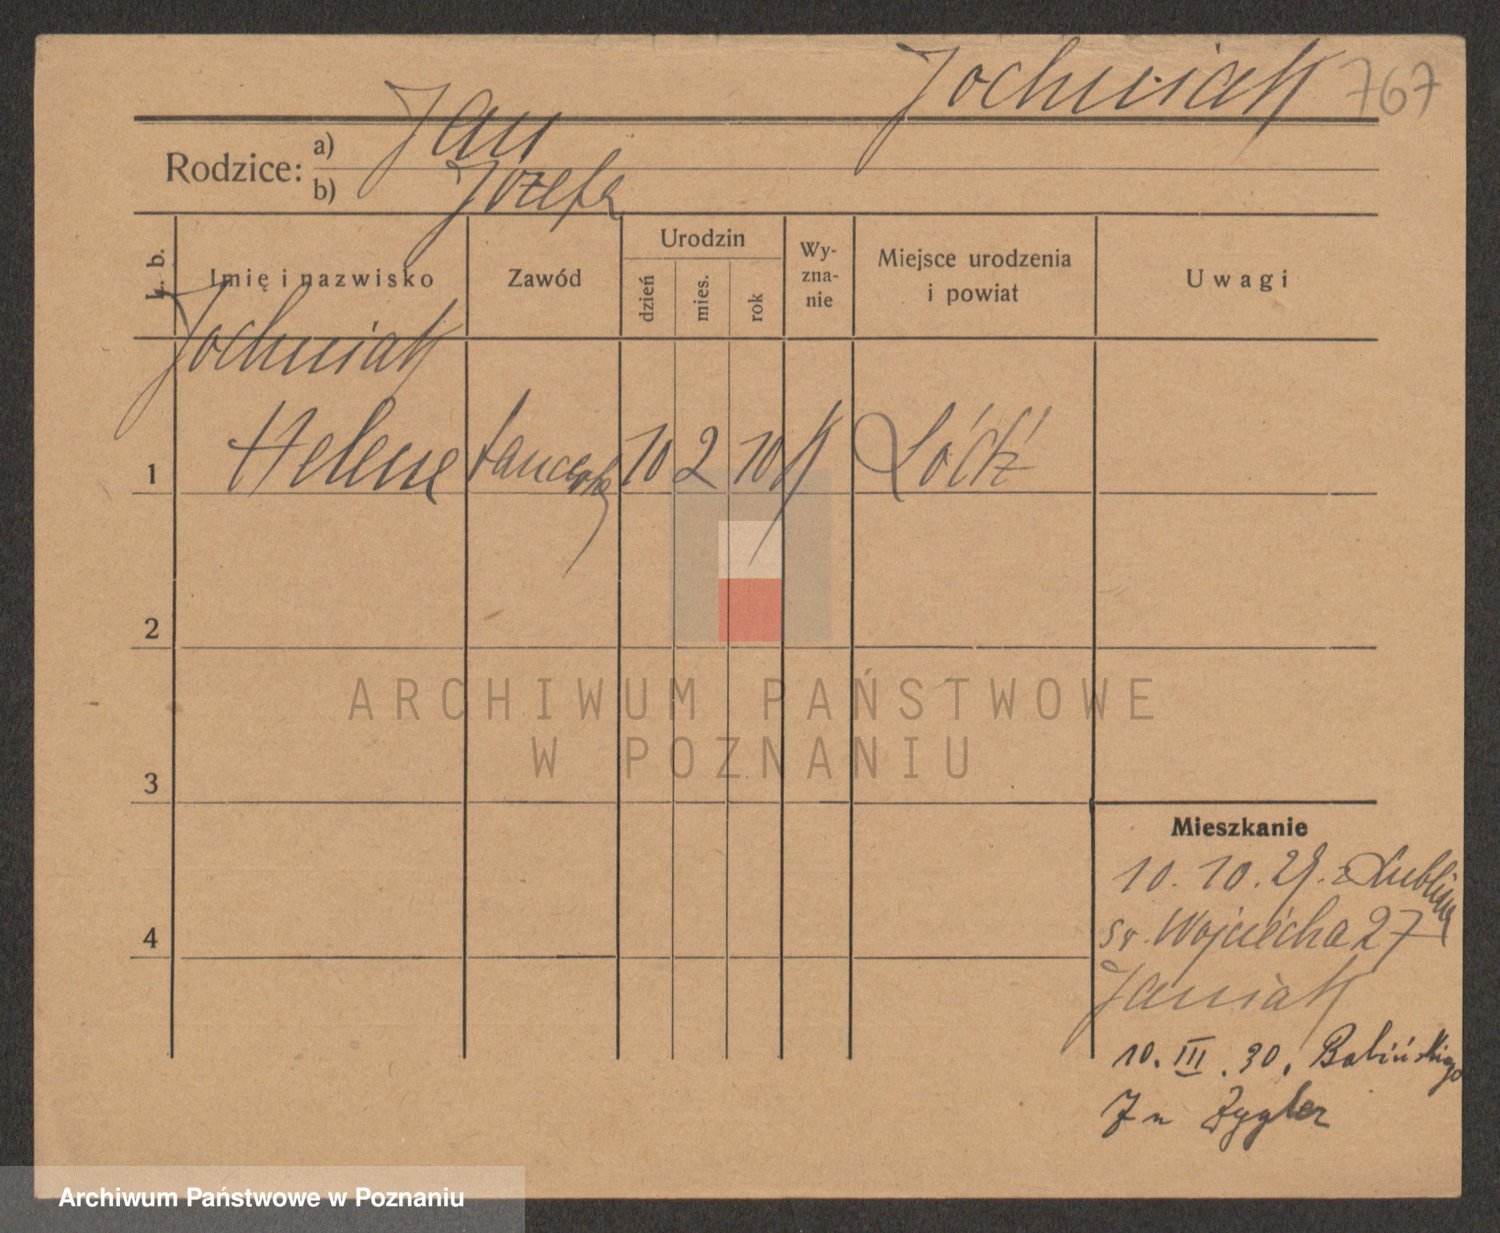 Jochniak 767
Rodzice: a) Jan
b) Józefa
L. b.
Imię i nazwisko
Zawód
Urodzin
dzień
mies.
rok
Wy-
zna-
nie
Miejsce urodzenia
i powiat
Uwagi
Jochniak
1 Helena tancerka 10 2 10 K Łódź
2
3
4
Mieszkanie
10. 10. 29. z Lublina
Sv. Wojciecha 27
Janiak
10. III. 30, Babińskiego
7 u Zygler
ARCHIWUM PAŃSTWOWE
W POZNANIU
Archiwum Państwowe w Poznaniu